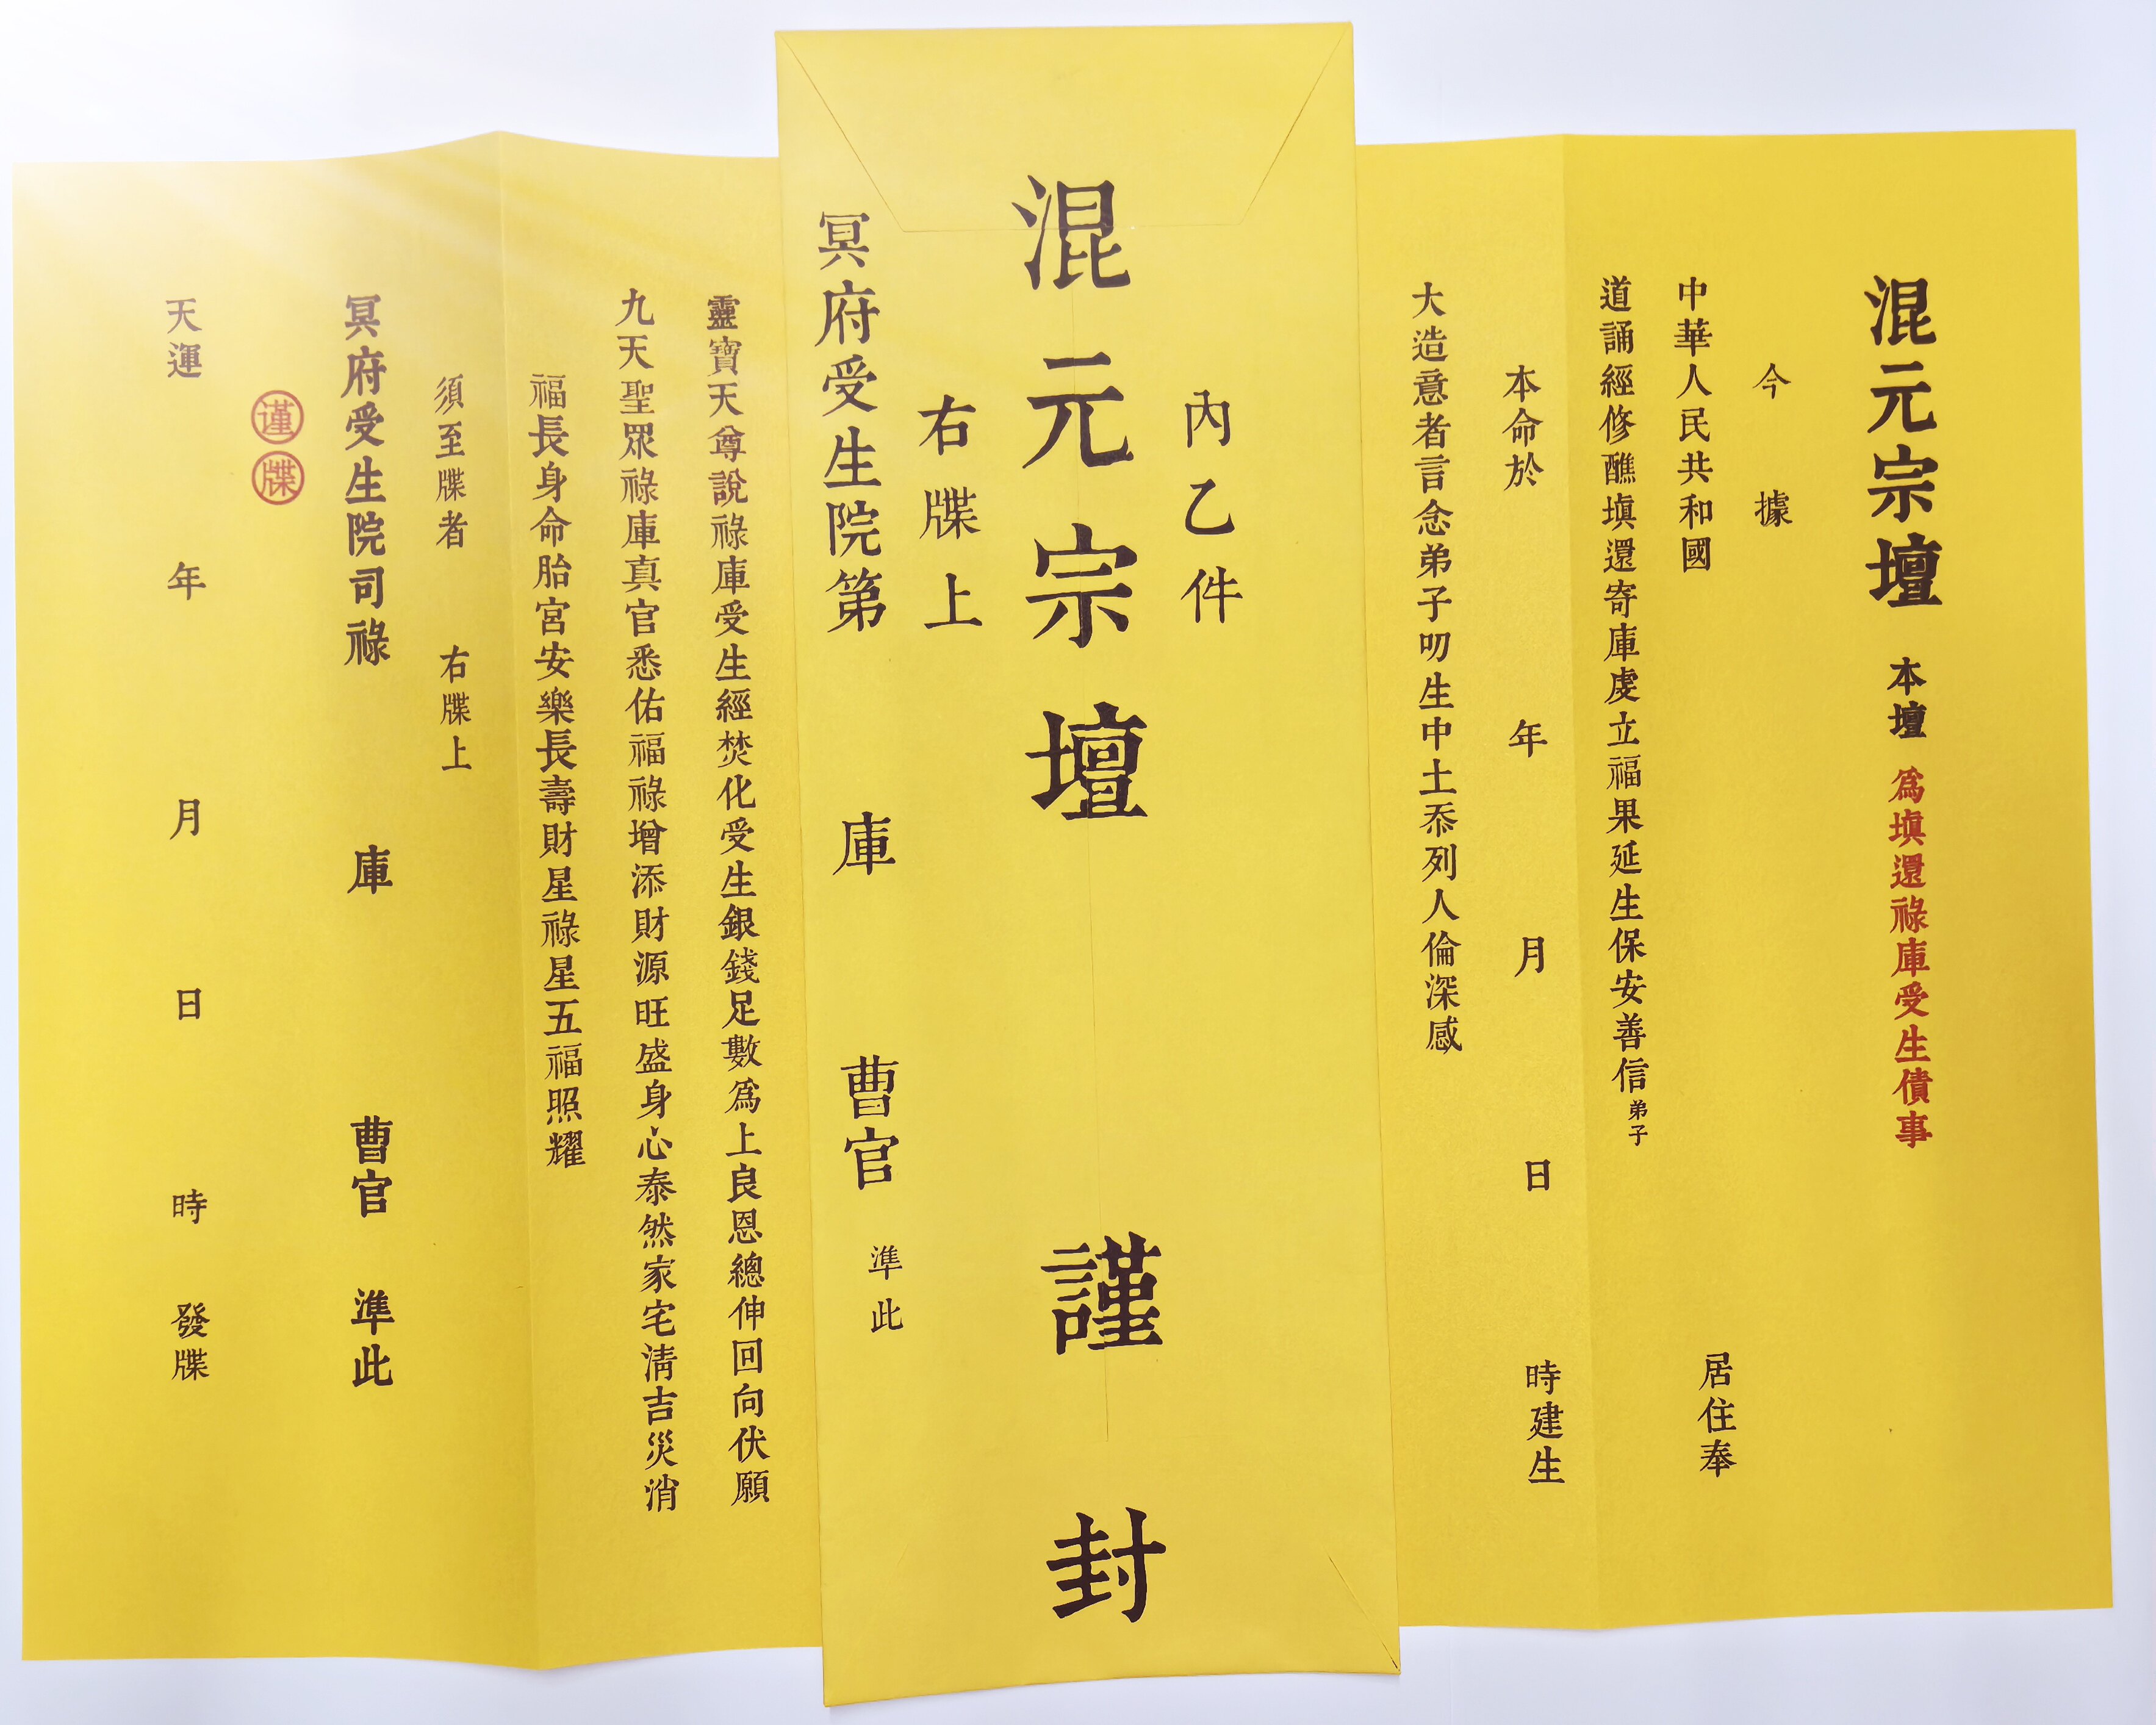 混元宗壇 本壇 為填還祿庫受生債事
今 據
中華人民共和國 居住奉
道誦經修醮填還寄庫虔立福果延生保安善信弟子
本命於 年 月 日 時建生
大造意者言念弟子叨生中土忝列人倫深感
內乙件
混元宗壇 謹封
右牒上
冥府受生院第 庫 曹官 準此
靈寶天尊說祿庫受生經焚化受生銀錢足數為上良恩總伸回向伏願
九天聖眾祿庫真官悉佑福祿增添財源旺盛身心泰然家宅清吉災消
福長身命胎宮安樂長壽財星祿星五福照耀
須至牒者 右牒上
冥府受生院司祿 庫 曹官 準此
谨牒
天運 年 月 日 時 發牒